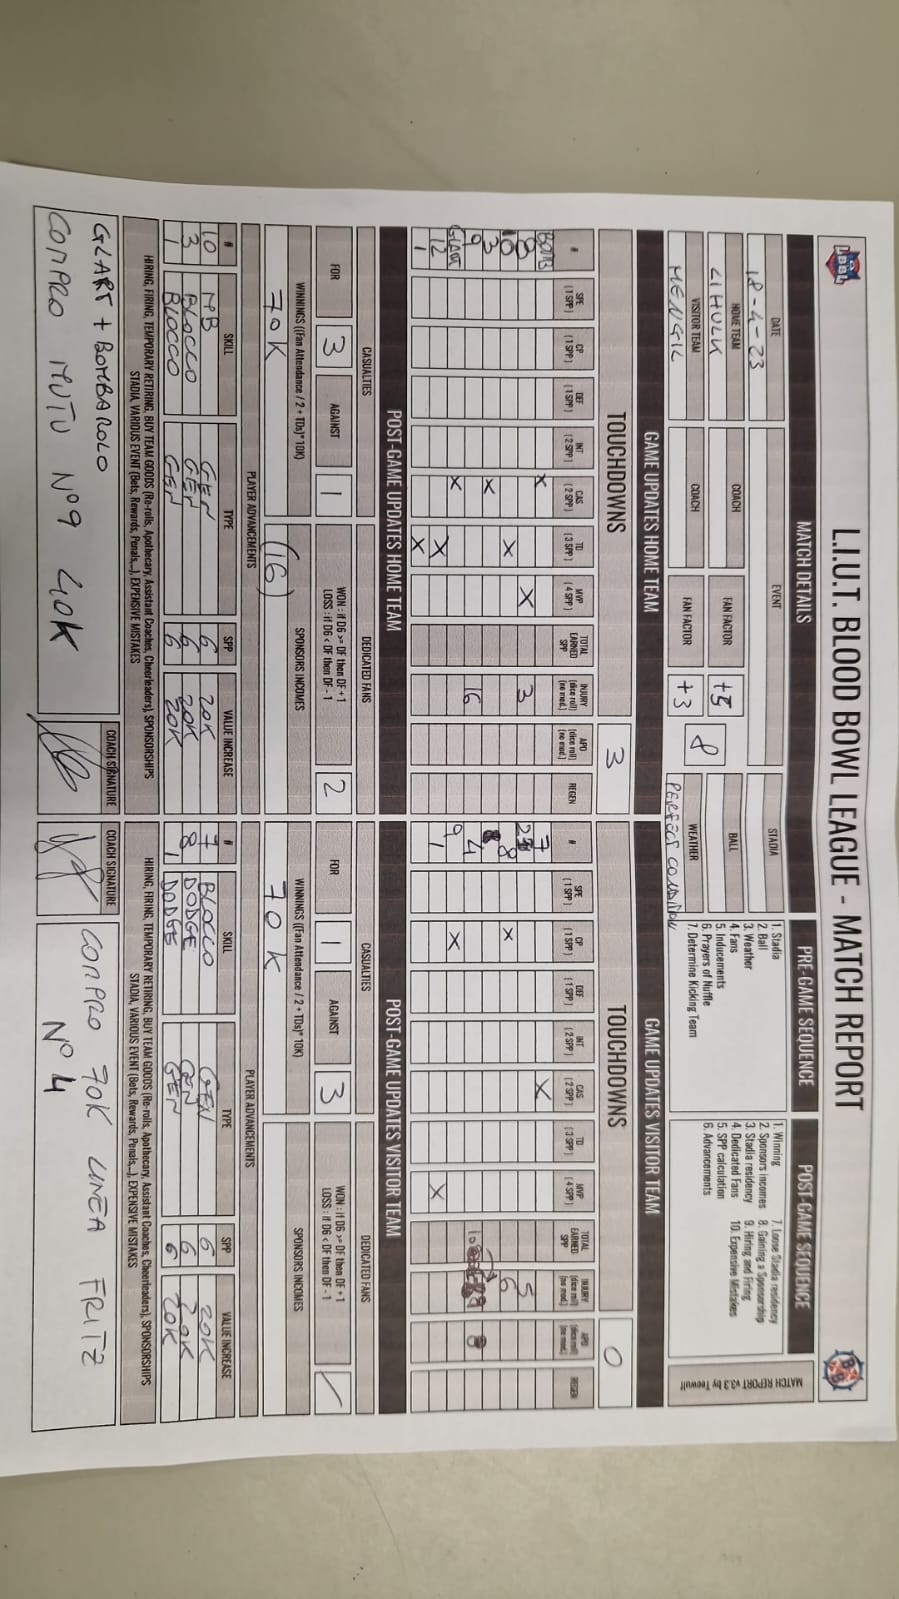 L.I.U.T. BLOOD BOWL LEAGUE - MATCH REPORT
MATCH DETAILS
DATE
18-4-23
EVENT
STADIA
HOME TEAM
LIHULK
COACH
FAN FACTOR
BALL
VISITOR TEAM
MENGIL
COACH
FAN FACTOR
+3
8
WEATHER
PERFECT CONDITION
PRE-GAME SEQUENCE
1. Stadia
2. Ball
3. Weather
4. Fans
5. Inducements
6. Prayers of Nuffle
7. Determine Kicking Team
POST-GAME SEQUENCE
1. Winning
2. Sponsors incomes
3. Stadia residency
4. Dedicated Fans
5. SPP calculation
6. Advancements
7. Loose Stadia residency
8. Gaining a Sponsorship
9. Hiring and Firing
10. Expensive Mistakes
MATCH REPORT v3.3 by Teowulf
GAME UPDATES HOME TEAM
TOUCHDOWNS 3
# SPE (1 SPP) CP (1 SPP) DEF (1 SPP) INT (2 SPP) CAS (2 SPP) TD (3 SPP) MVP (4 SPP) TOTAL EARNED SPP INJURY (dice roll) (no mod.) APO (dice roll) (no mod.) REGEN
BOMB X
8 X 3
10 X
3 X
9 16
GLART X
12 X
1 X
GAME UPDATES VISITOR TEAM
TOUCHDOWNS 0
# SPE (1 SPP) CP (1 SPP) DEF (1 SPP) INT (2 SPP) CAS (2 SPP) TD (3 SPP) MVP (4 SPP) TOTAL EARNED SPP INJURY (dice roll) (no mod.) APO (dice roll) (no mod.) REGEN
7 X
5
8 X 6
4 8
9 X
1 X
POST-GAME UPDATES HOME TEAM
CASUALTIES
FOR 3 AGAINST 1
DEDICATED FANS
WON : if D6 >= DF then DF + 1
LOSS : if D6 < DF then DF - 1
2
WINNINGS ((Fan Attendance / 2 + TDs)* 10K)
70K
SPONSORS INCOMES
(16)
PLAYER ADVANCEMENTS
# SKILL TYPE SPP VALUE INCREASE
10 MB GEN 6 20K
3 BLOCCO GEN 6 20K
1 BLOCCO GEN 6 20K
HIRING, FIRING, TEMPORARY RETIRING, BUY TEAM GOODS (Re-rolls, Apothecary, Assistant Coaches, Cheerleaders), SPONSORSHIPS
STADIA, VARIOUS EVENT (Bets, Rewards, Penals...), EXPENSIVE MISTAKES
GLART + BOMBAROLO
COMPRO MUTU N°9 40K
COACH SIGNATURE
POST-GAME UPDATES VISITOR TEAM
CASUALTIES
FOR 1 AGAINST 3
DEDICATED FANS
WON : if D6 >= DF then DF + 1
LOSS : if D6 < DF then DF - 1
WINNINGS ((Fan Attendance / 2 + TDs)* 10K)
70K
SPONSORS INCOMES
PLAYER ADVANCEMENTS
# SKILL TYPE SPP VALUE INCREASE
7 BLOCCO GEN 6 20K
8 DODGE GEN 6 20K
1 DODGE GEN 6 20K
HIRING, FIRING, TEMPORARY RETIRING, BUY TEAM GOODS (Re-rolls, Apothecary, Assistant Coaches, Cheerleaders), SPONSORSHIPS
STADIA, VARIOUS EVENT (Bets, Rewards, Penals...), EXPENSIVE MISTAKES
COACH SIGNATURE
COMPRO 70K LINEA FRITZ
N°4